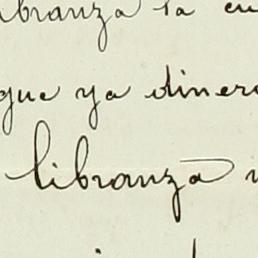 libranza la
que ya dinero
libranza